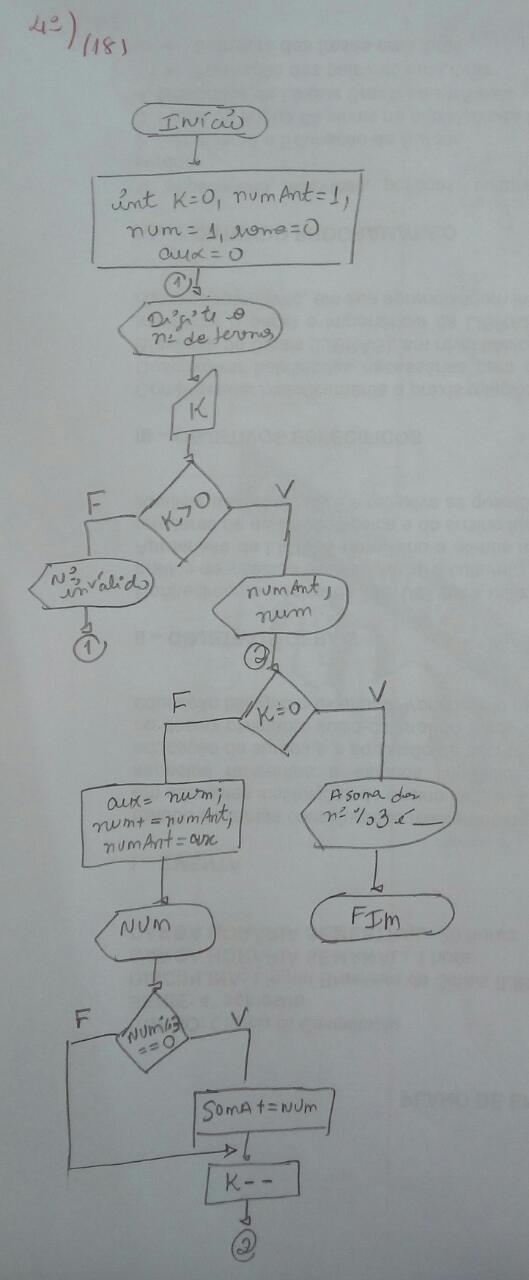 4º) (18)
INÍCIO
int K=0, numAnt=1,
num=1, soma=0
aux=0
1
Digite o
nº de termos
K
K>0
F
V
Nº
inválido
1
numAnt,
num
2
K=0
F
V
aux= num;
num+=numAnt;
numAnt=aux
A soma dos
nº %3 é __
NUM
FIM
F
V
Num%3
==0
SOMA+=NUM
K--
2